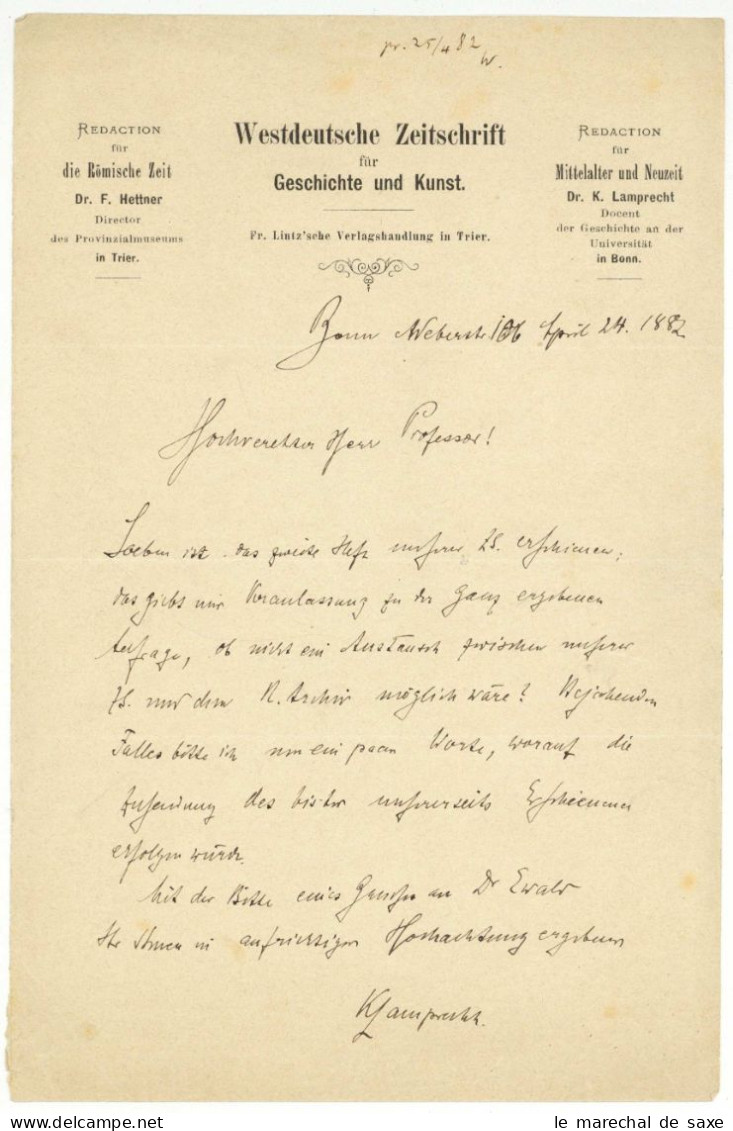 pr. 25/4 82
W.
REDACTION
für
die Römische Zeit
Dr. F. Hettner
Director
des Provinzialmuseums
in Trier.
Westdeutsche Zeitschrift
für
Geschichte und Kunst.
Fr. Lintz'sche Verlagshandlung in Trier.
REDACTION
für
Mittelalter und Neuzeit
Dr. K. Lamprecht
Docent
der Geschichte an der
Universität
in Bonn.
Bonn Weberstr 106 April 24. 1882
Hochverehrter Herr Professor!
Soeben ist das zweite Heft unserer ZS. erschienen;
das giebt mir Veranlassung zu der ganz ergebenen
Anfrage, ob nicht ein Austausch zwischen unserer
ZS. und dem N. Archiv möglich wäre? Bejahenden
Falles bitte ich um ein paar Worte, worauf die
Zusendung des bisher unsererseits Erschienenen
erfolgen würde.
Mit der Bitte eines Grusses an Dr Ewald
Ihr Ihnen in aufrichtiger Hochachtung ergebener
KLamprecht.
le marechal de saxe